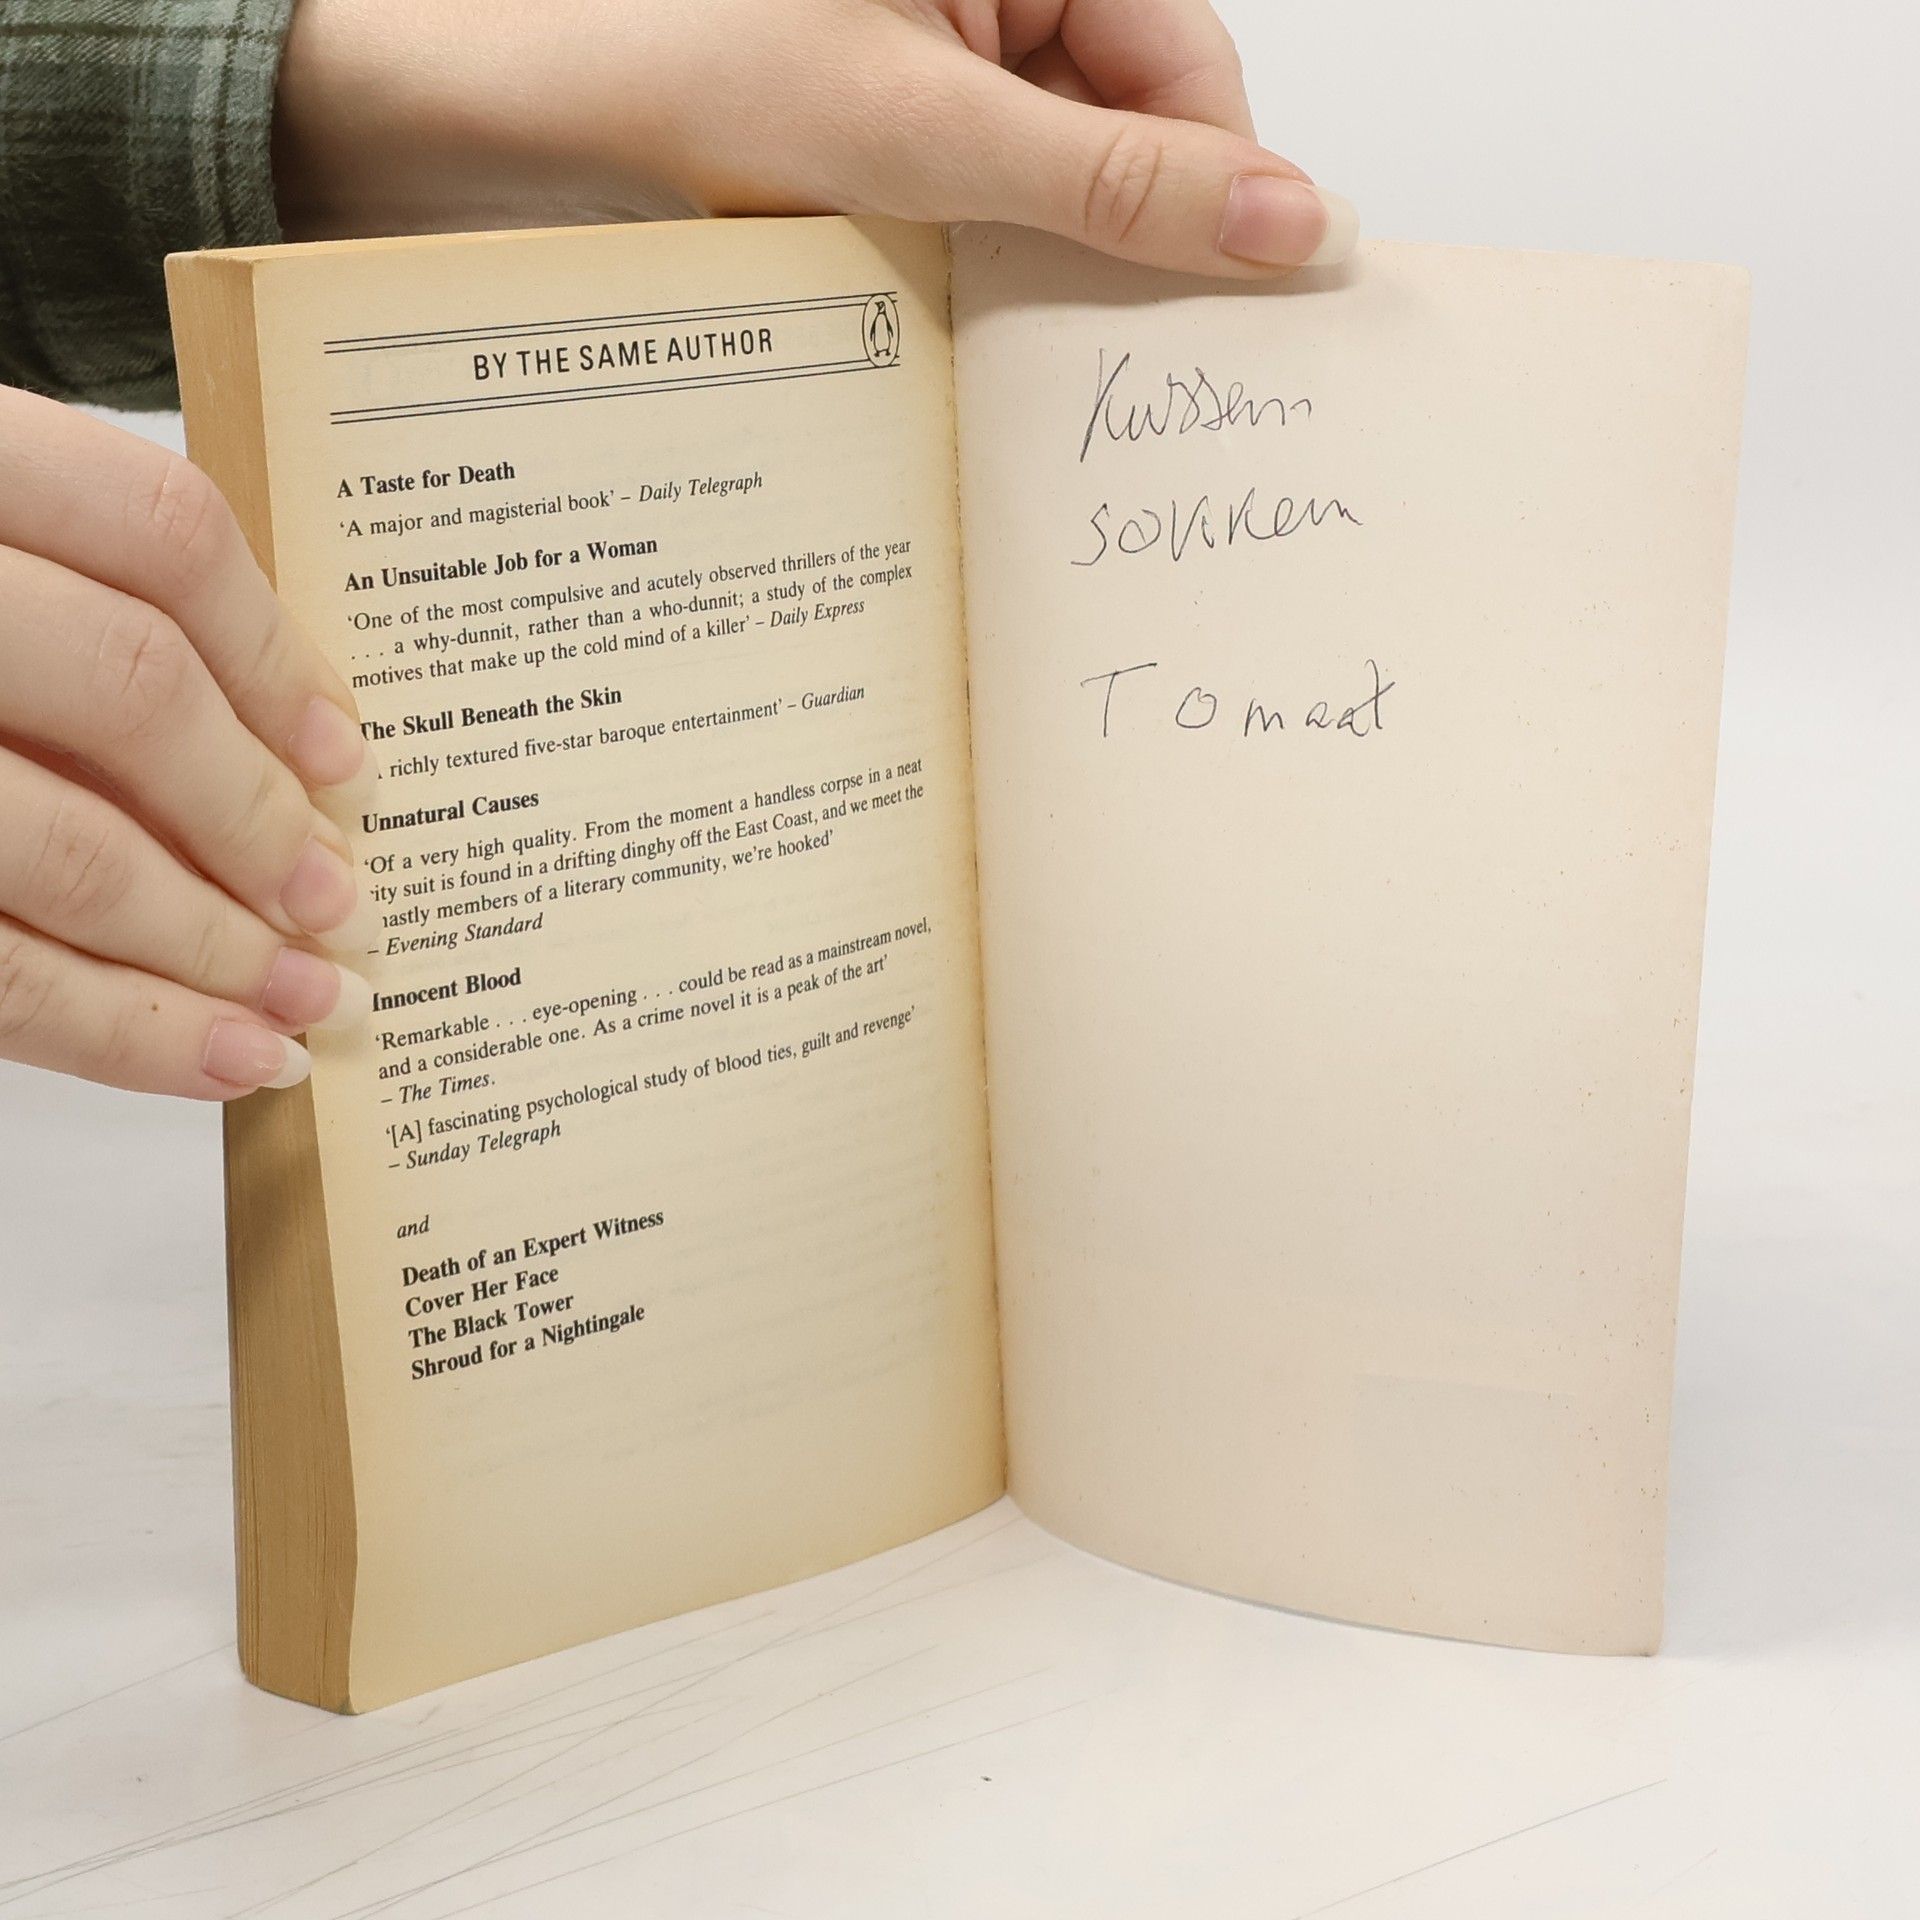 BY THE SAME AUTHOR
A Taste for Death
‘A major and magisterial book’ – Daily Telegraph
An Unsuitable Job for a Woman
‘One of the most compulsive and acutely observed thrillers of the year
. . . a why-dunnit, rather than a who-dunnit; a study of the complex
motives that make up the cold mind of a killer’ – Daily Express
The Skull Beneath the Skin
richly textured five-star baroque entertainment’ – Guardian
Unnatural Causes
‘Of a very high quality. From the moment a handless corpse in a neat
ity suit is found in a drifting dinghy off the East Coast, and we meet the
astly members of a literary community, we’re hooked’
– Evening Standard
Innocent Blood
‘Remarkable . . . eye-opening . . . could be read as a mainstream novel,
and a considerable one. As a crime novel it is a peak of the art’
– The Times.
‘[A] fascinating psychological study of blood ties, guilt and revenge’
– Sunday Telegraph
and
Death of an Expert Witness
Cover Her Face
The Black Tower
Shroud for a Nightingale
Kussen
sokken
Tomaat